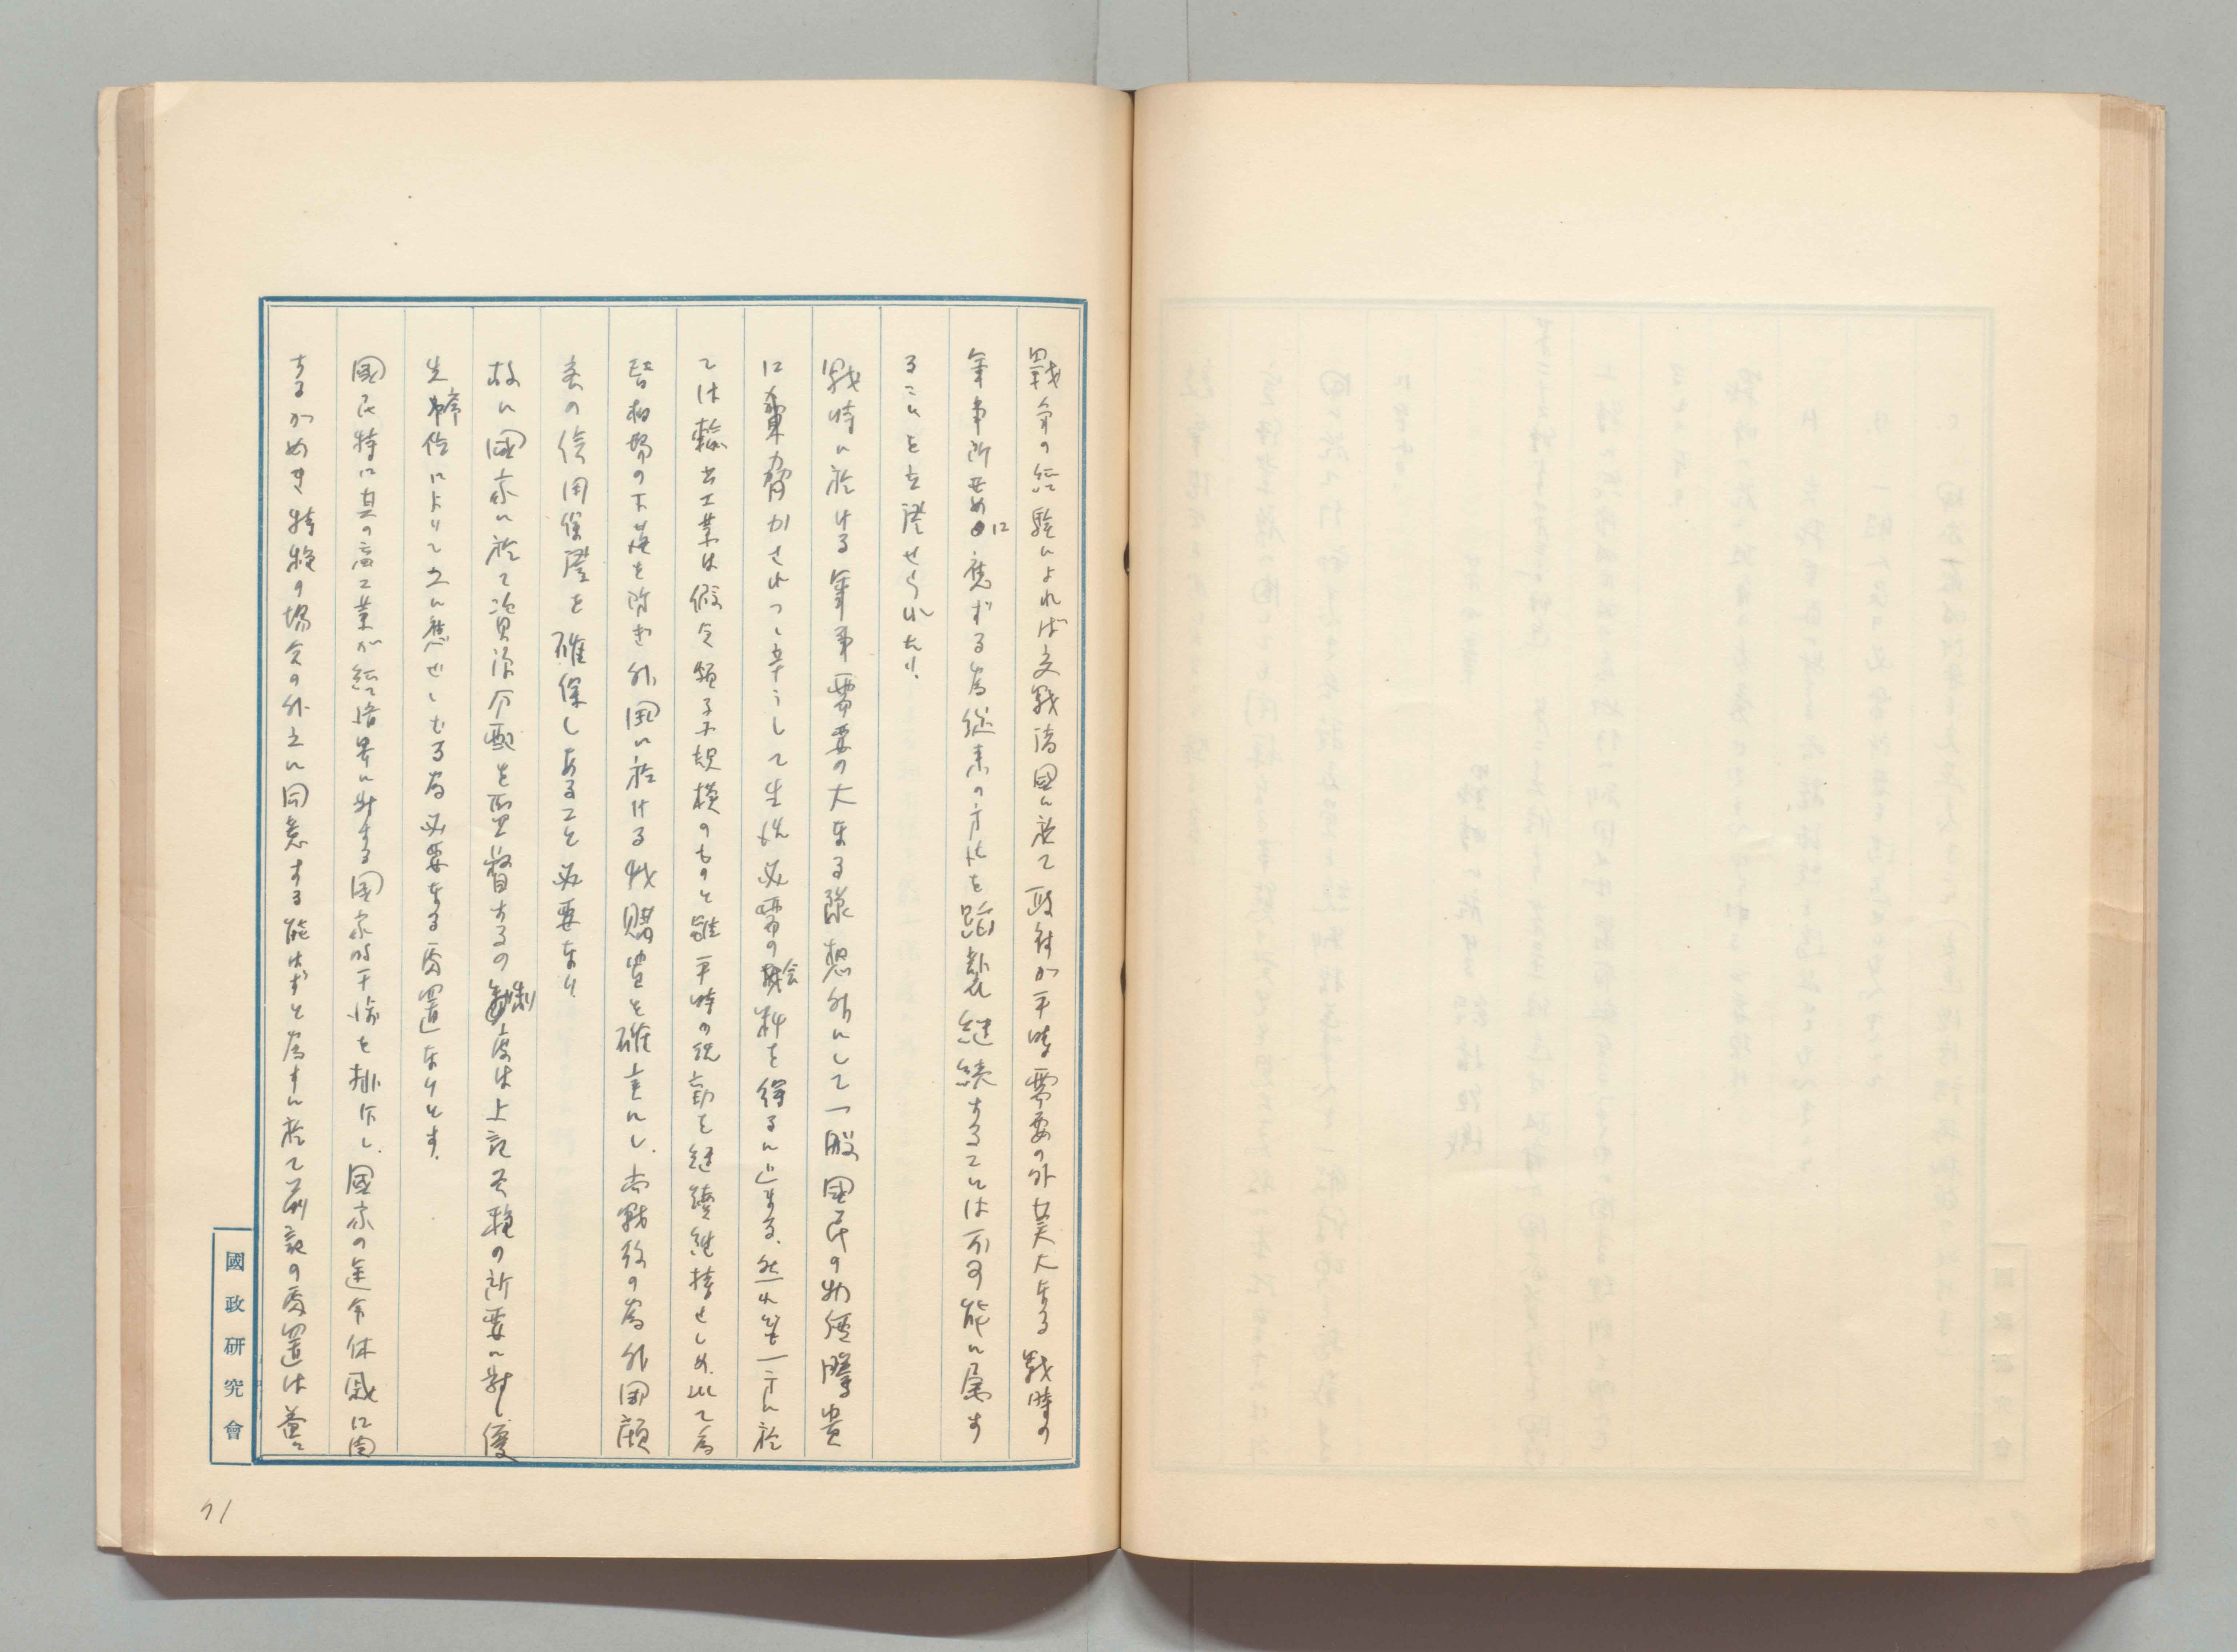 戰争の経驗によれば交戰諸國に於て政府が平時需要の外莫大なる戰時の
軍事所要に應ずる為従来の方法を踏襲継続することは不可能に属す
ることを立證せられたり.
戰時に於ける軍事需要の大なる豫想外にして一般国民の物価騰貴
に脅かされつゝ辛うして生活必需の糧料を得るに止まる.然れども一方に於
ては輸出工業は假令頗る小規模のものと雖平時の活動を継續維持せしめ.以て為
替相場の下落を防ぎ外国に於ける購買を確実にし.尚戰後の為外国顧
客の信用保證を確保しあること必要なり.
故に國家に於て資源分配を監督するの制度は上記各種の所要に對し優
先順位によりて之に應せしむる為必要なる處置なりとす.
國民特に其の商工業が経済界に對する国家的干渉を排斥し.國家の運命休戚に関
するがめき特種の場合の外之に同意する能はずと為すに於て前記の處置は益々
國政研究會
71